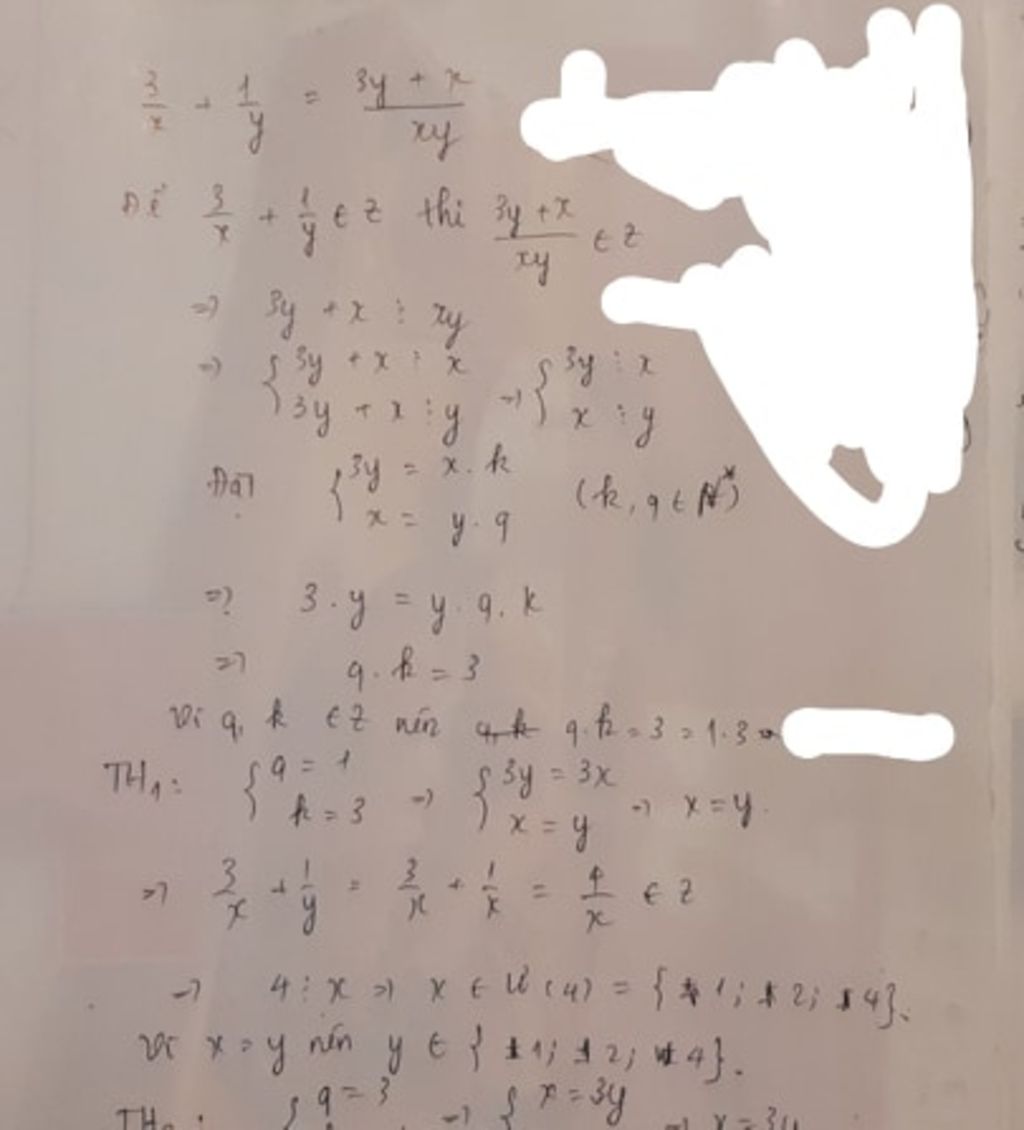 3/x + 1/y = (3y + x)/(xy)
Để 3/x + 1/y ∈ Z thì (3y + x)/(xy) ∈ Z
=> 3y + x ⋮ xy
=> { 3y + x ⋮ x ; 3y + x ⋮ y => { 3y ⋮ x ; x ⋮ y
Đặt { 3y = x . k ; x = y . q (k, q ∈ N*)
=> 3 . y = y . q . k
=> q . k = 3
Vì q, k ∈ Z nên q . k = 3 = 1 . 3
TH1: { q = 1 ; k = 3 => { 3y = 3x ; x = y => x = y.
=> 3/x + 1/y = 3/x + 1/x = 4/x ∈ Z
=> 4 ⋮ x => x ∈ Ư(4) = { 1; 2; 4}.
Vì x = y nên y ∈ { 1; 2; 4}.
{ q = 3 => { x = 3y => x = 3y